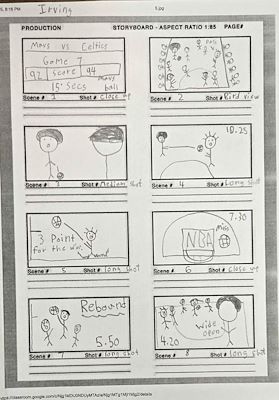 Irving
5, 8:15 PM
5.jpg
PRODUCTION
STORYBOARD - ASPECT RATIO 1:85
PAGE#
Mavs vs Celtics
Game 7
92 score 94
15 secs
Mavs ball
Scene # 1 Shot # close up
Scene # 2 Shot # Bird view
Scene # 3 Shot # Medium shot
10.25
Scene # 4 Shot # Long shot
3 Point
for the win
Scene # 5 Shot # long shot
7.30
Mavs
NBA
Scene # 6 Shot # close up
Rebound
5:50
Scene # 7 Shot # long shot
wide
open
4:20
Scene # 8 Shot # long shot